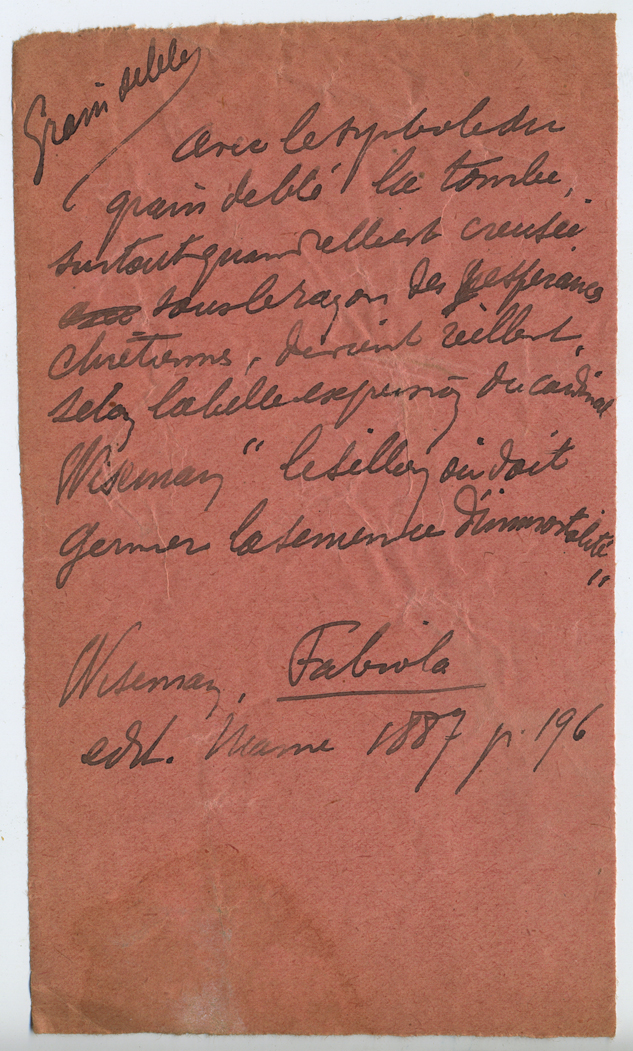 Grain de blé
avec le symbole du
grain de blé la tombe,
surtout quand elle est creusée
sous le rayon des espérances
chrétiennes, devient réellement,
selon la belle expression du cardinal
Wiseman "le sillon où doit
germer la semence d'immortalité
"
Wiseman, Fabiola
edit. Mame 1887 p. 196